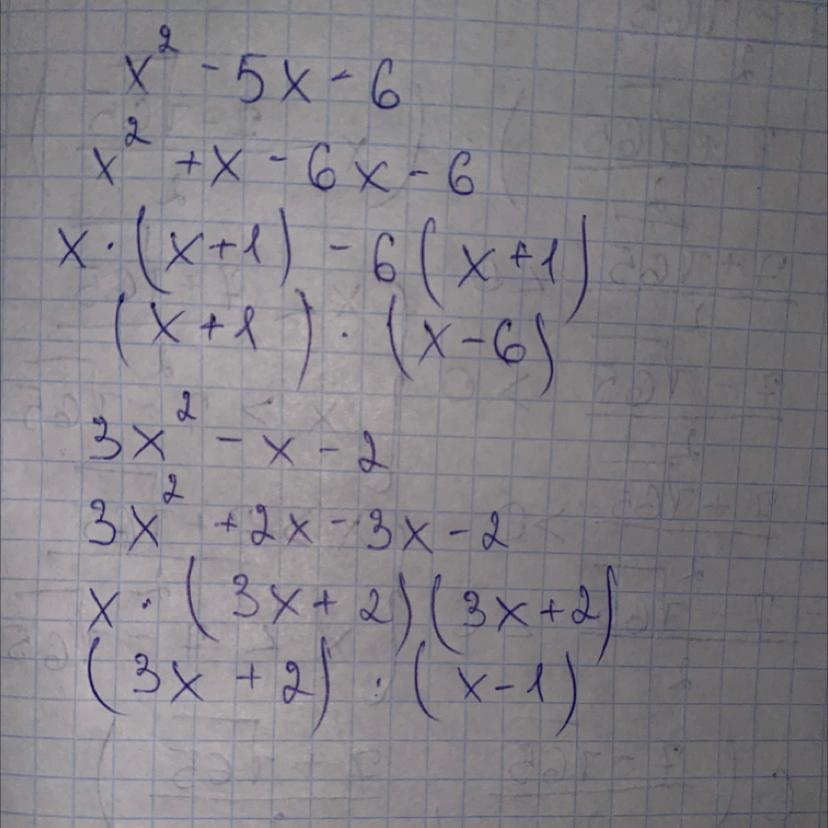 x² - 5x - 6
x² + x - 6x - 6
x · (x+1) - 6(x+1)
(x+1) · (x-6)
3x² - x - 2
3x² + 2x - 3x - 2
x · (3x+2)(3x+2)
(3x+2) · (x-1)